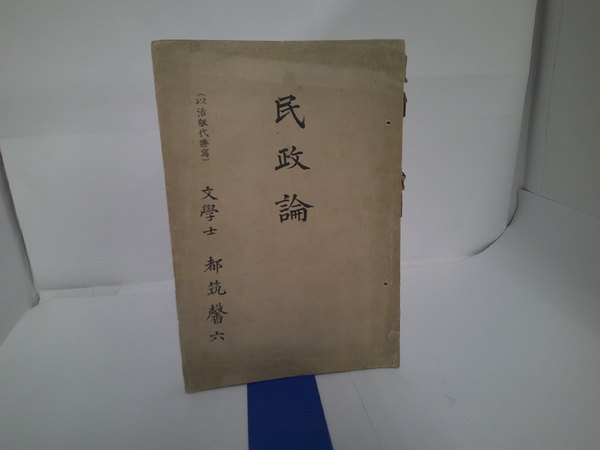 民政論
(以活版代謄寫)
文學士 都筑馨六